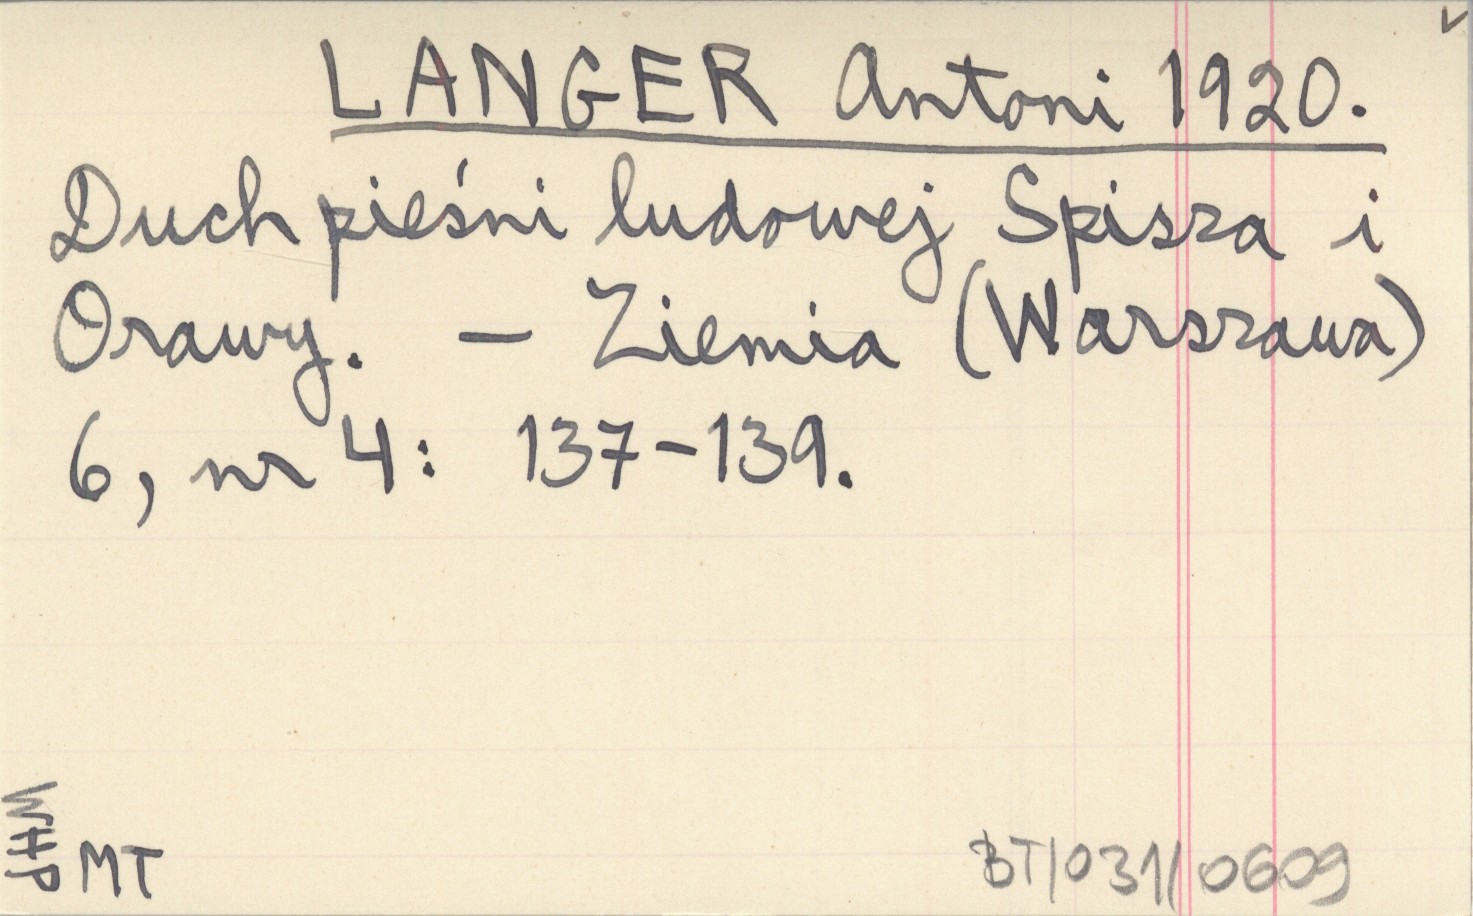 LANGER Antoni 1920.
Duch pieśni ludowej Spisza i
Orawy. – Ziemia (Warszawa)
6, nr 4: 137–139.
MT
BT/031/0609